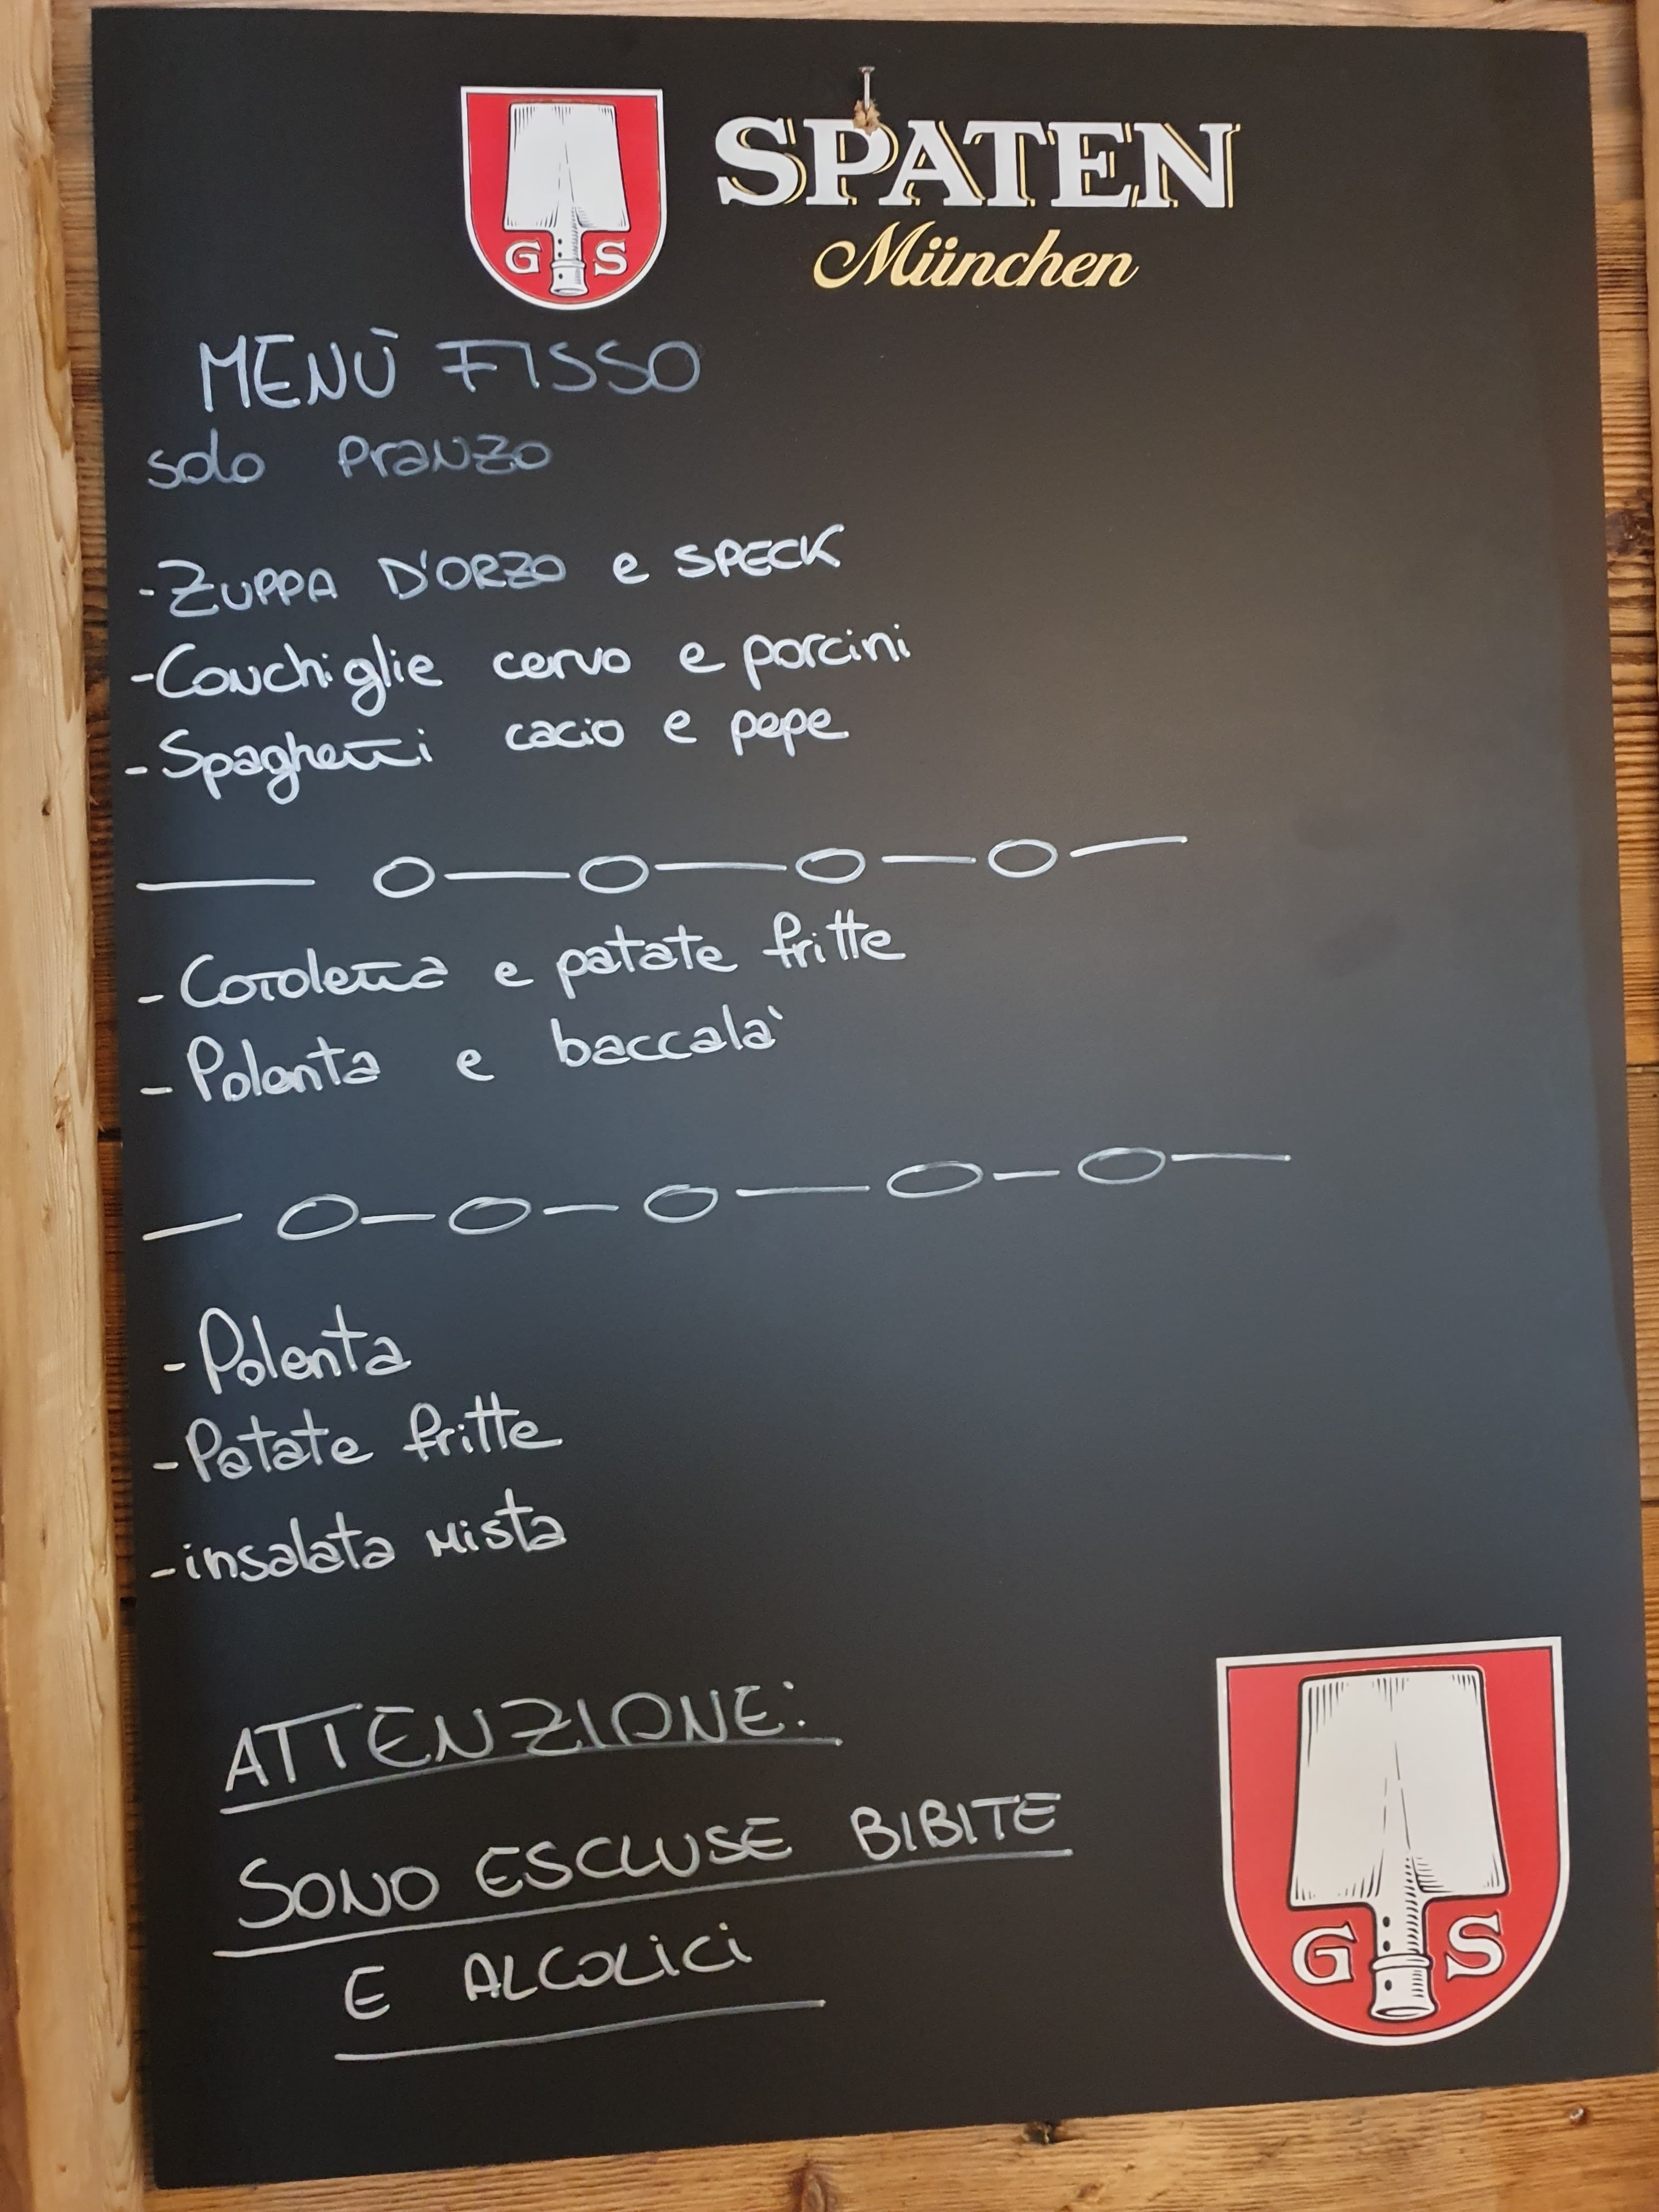 G S
SPATEN
München
MENÙ FISSO
solo Pranzo
-ZUPPA D'ORZO e SPECK
-Conchiglie cervo e porcini
-Spaghetti cacio e pepe
- Cotoletta e patate fritte
- Polenta e baccala'
-Polenta
-Patate fritte
-insalata mista
ATTENZIONE:
SONO ESCLUSE BIBITE
E ALCOLICI
G S